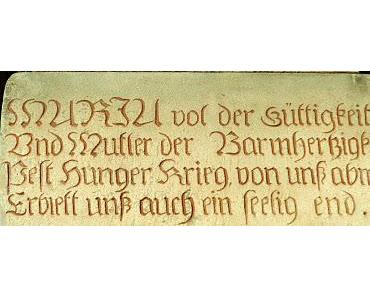 MARIA vol der Güttigkeit
Vnd Mutter der Barmhertzigk
Pest Hunger Krieg, von unß abw
Erbiett unß auch ein seelig end.